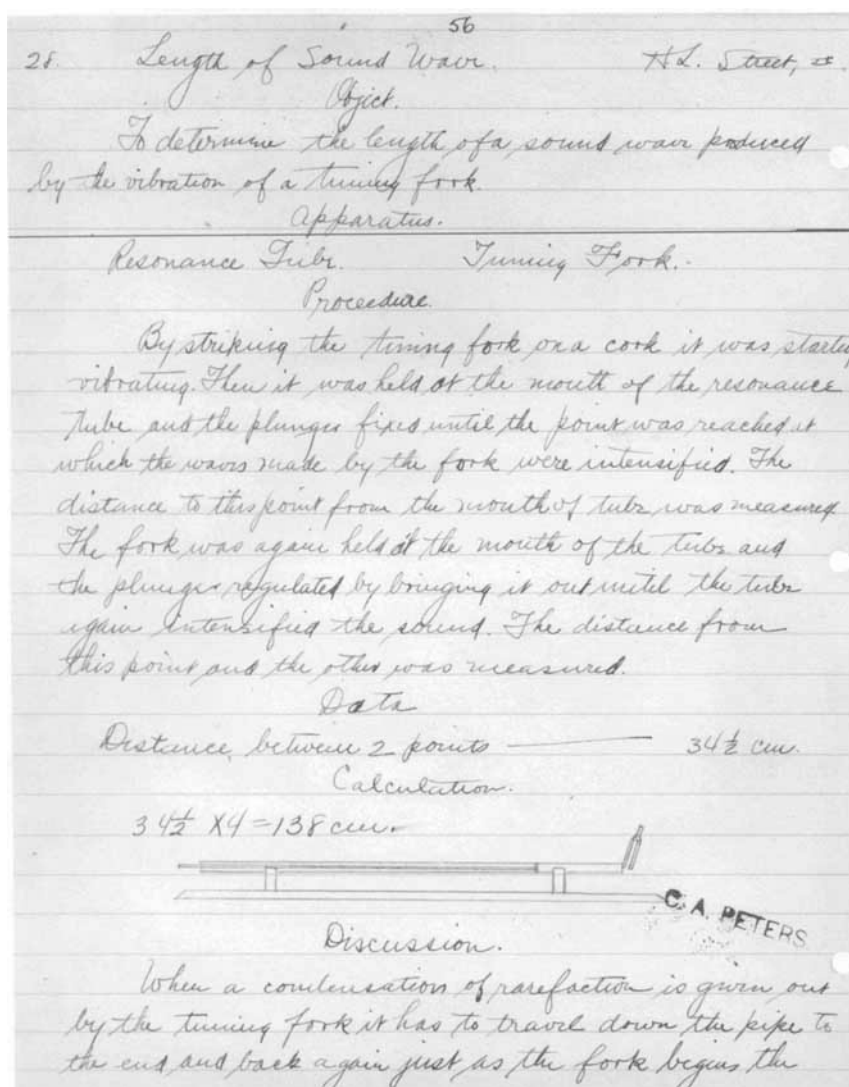 56
28. Length of Sound Wave. H L. Street,
Object.
To determine the length of a sound wave produced
by the vibration of a tuning fork.
Apparatus.
Resonance Tube. Tuning Fork.
Procedure.
By striking the tuning fork on a cork it was started
vibrating. Then it was held at the mouth of the resonance
tube and the plunger fixed until the point was reached at
which the waves made by the fork were intensified. The
distance to this point from the mouth of tube was measured
The fork was again held at the mouth of the tube and
the plunger regulated by bringing it out until the tube
again intensified the sound. The distance from
this point and the other was measured.
Data
Distance between 2 points — 34½ cm.
Calculation.
34½ X4 = 138 cm.
C. A. PETERS
Discussion.
When a condensation of rarefaction is given out
by the tuning fork it has to travel down the pipe to
the end and back again just as the fork begins the